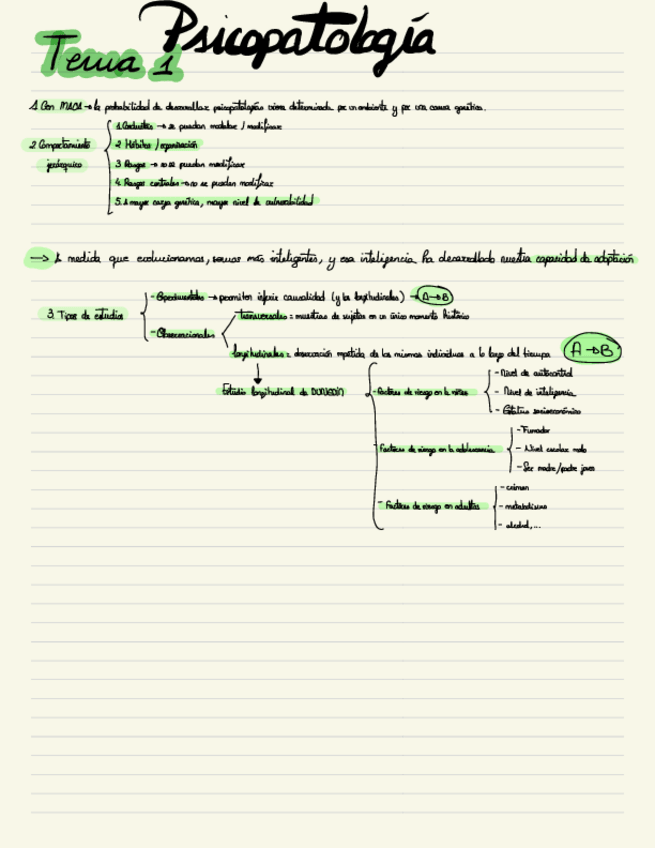 Psicopatología
Tema 1
1. Gen MAOA → la probabilidad de desarrollar psicopatologías viene determinada por un ambiente y por una causa genética.
2 Comportamiento jerárquico
1. Conductas → se pueden modelar / modificar
2 Hábitos / organización
3 Rasgos → no se pueden modificar
4. Rasgos centrales → no se pueden modificar
5. A mayor carga genética, mayor nivel de vulnerabilidad
→ A medida que evolucionamos, somos más inteligentes, y esa inteligencia ha desarrollado nuestra capacidad de adaptación
3. Tipos de estudios
- Experimentales → permiten inferir causalidad (y los longitudinales) → A→B
- Observacionales
transversales = muestras de sujetos en un único momento histórico
longitudinales = observación repetida de los mismos individuos a lo largo del tiempo A→B
Estudio longitudinal de DUNEDIN
- Factores de riesgo en la niñez
- Nivel de autocontrol
- Nivel de inteligencia
- Estatus socioeconómico
- Factores de riesgo en la adolescencia
- Fumador
- Nivel escolar malo
- Ser madre/padre joven
- Factores de riesgo en adultos
- crimen
- metabolismo
- alcohol,...